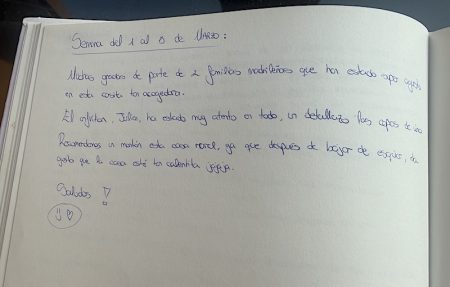 Semana del 1 al 8 de Marzo:
Muchas gracias de parte de 2 familias madrileñas que han estado super agusto
en esta casita tan acogedora.
El anfitrión, Julio, ha estado muy atento en todo, un detallazo las copas de
Recomendamos un montón esta casa rural, ya que después de bajar de esquiar, da
gusto que la casa esté tan calentita jejeje.
Saludos !